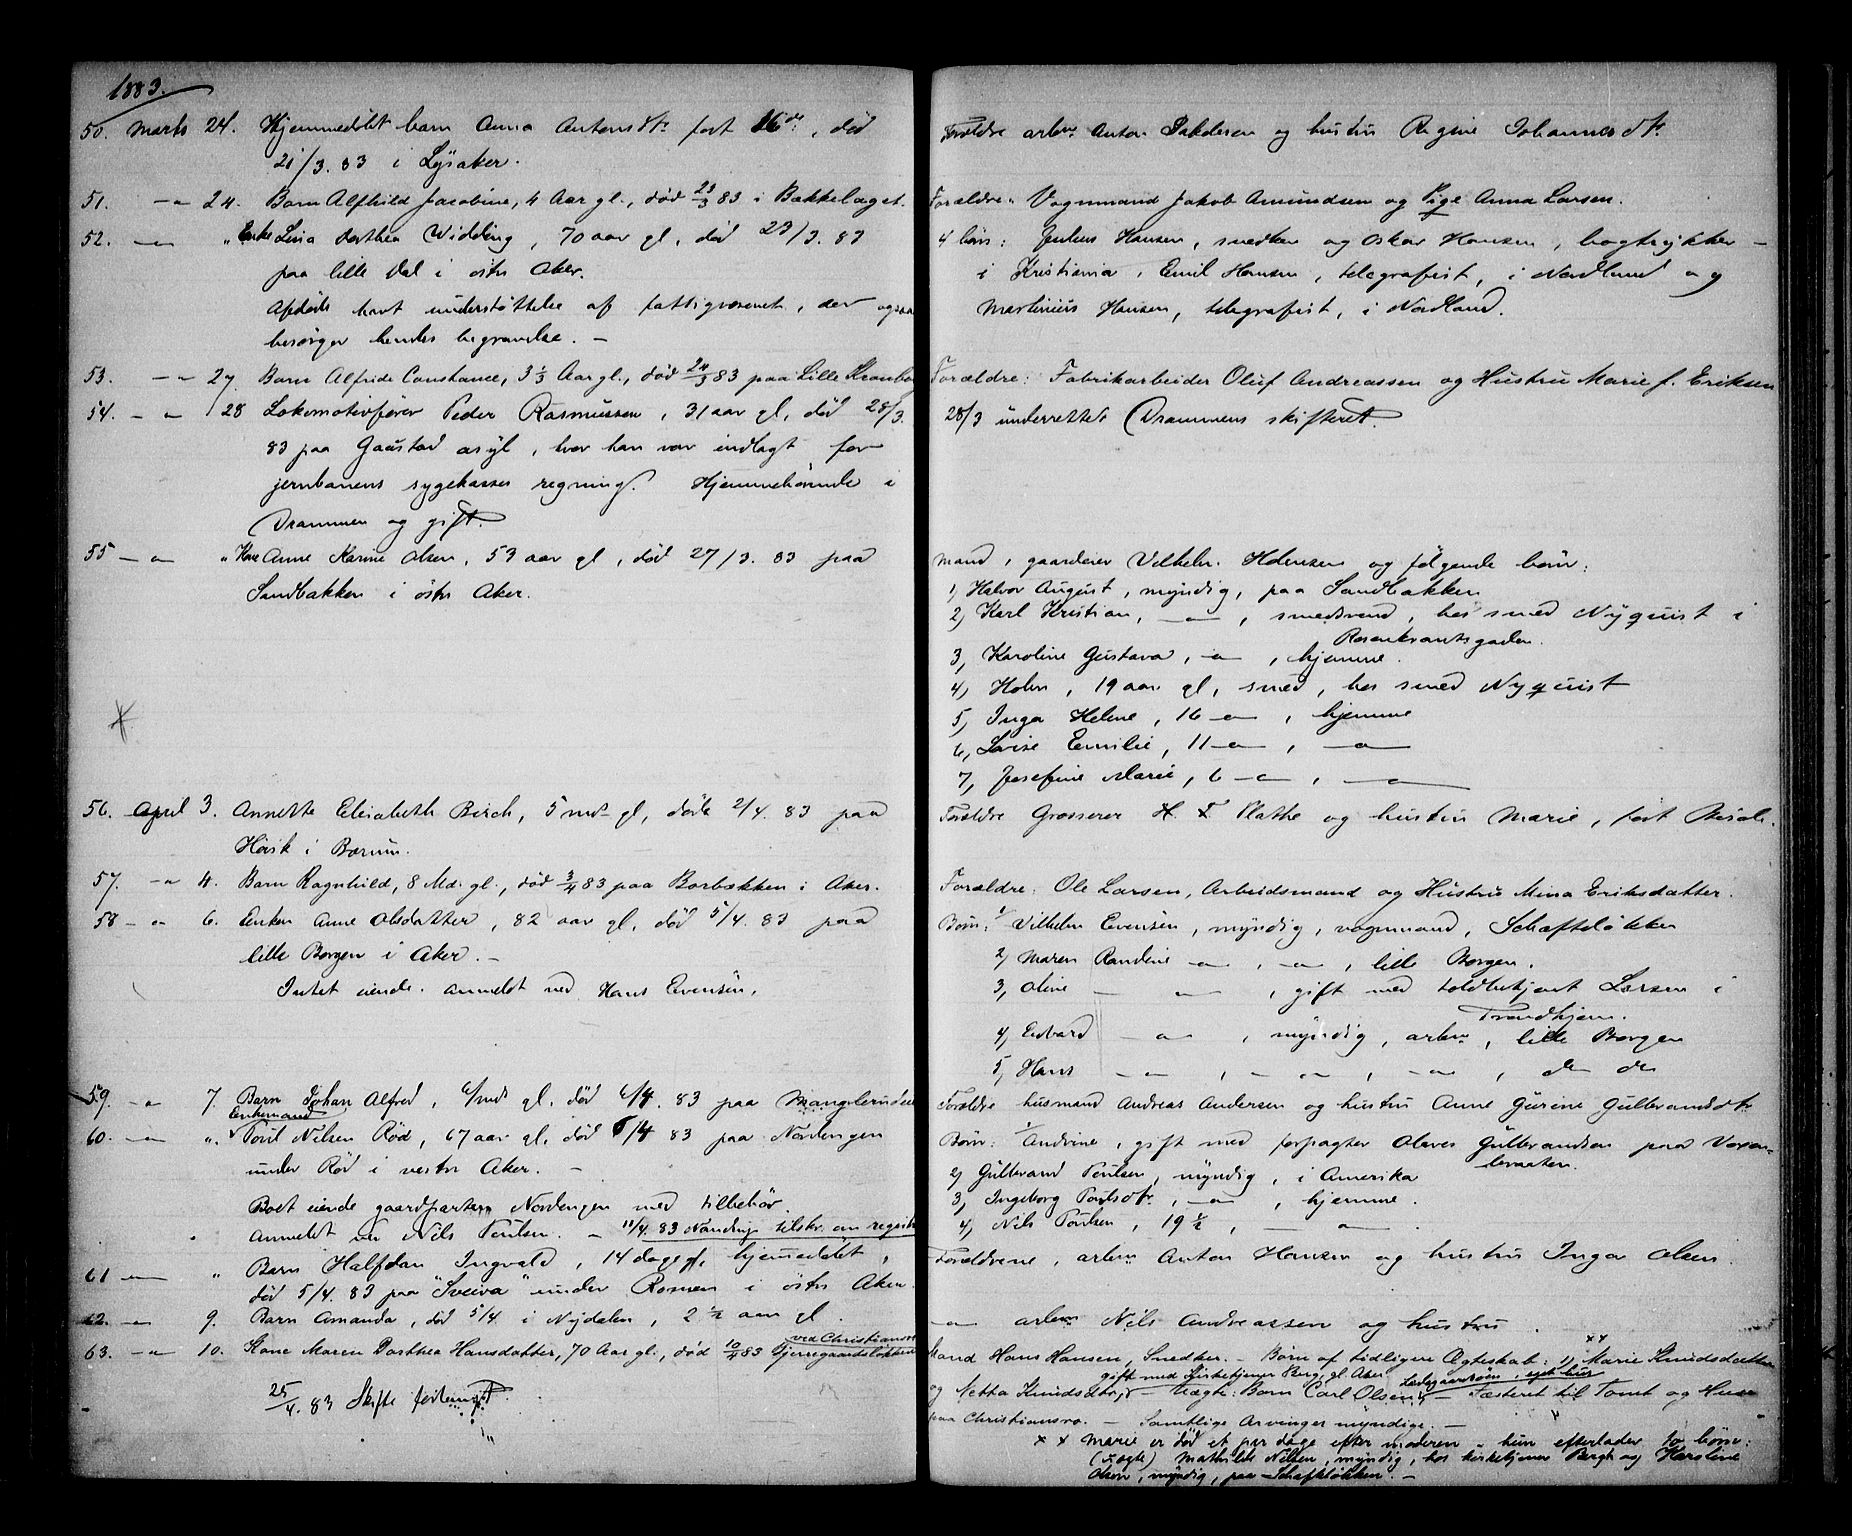 1883.
50. Marts 24. Hjemmedøbt barn Anna Antonsdtr født 16de, død
21/3. 83 i Lysaker.
51. —"— 24. Barn Alfhild Jacobine, 4 Aar gl., død 23/3 83 i Bækkelaget.
52. —"— " Enke Lina Dorthea Widding, 70 aar gl, død 23/3. 83
paa lille Dal i østre Aker.
Afdøde havt understøttelse af fattigvæsenet, der ogsaa
besørger hendes begravelse. —
53. —"— 27. Barn Alfride Constance, 3 1/3 Aar gl., død 24/3 83 paa Lille Kranbo
54. —"— 28 Lokomotivfører Peder Rasmussen, 31 aar gl, død 28/3.
83 paa Gaustad asyl, hvor han var indlagt for
jernbanens sygekasses regning. Hjemmehørende i
Drammen og gift.
55 —"— " Kone Anne Karine Olsen, 53 aar gl, død 27/3. 83 paa
Sandbakken i østre Aker.
56. April 3. Annette Elisabeth Birch, 5 mdr gl, døde 2/4. 83 paa
Høvik i Bærum.
57. —"— 4. Barn Ragnhild, 8 Md. gl., død 3/4 83 paa Borbækken i Aker.
58 —"— 6. Enken Anne Olsdatter, 82 aar gl, død 5/4. 83 paa
lille Borgen i Aker. —
Intet eiende. Anmeldt ved Hans Evensen.
59. —"— 7. Barn Johan Alfred, 6/mdr gl, død 6/4. 83 paa Manglerudeie
Enkemand
60. —"— ". Poul Nilsen Rød, 67 aar gl, død 5/4 83 paa Nordengen
under Rød i vestre Aker. —
Boet eiende gaardparten Nordengen med tilbehør.
Anmeldt ved Nils Poulsen. — 11/4. 83 Nandrup tilskr. om registr
61 —"— " Barn Halfdan Ingvald, 14 dage gl, hjemmedøbt,
død 5/4. 83 paa "Sveiva" under Rosnen i østre Aker.
62 —"— 9. Barn Amanda, død 5/4 i Nydalen, 2 1/2 aar gl.
ved Christiansro
63. —"— 10. Kone Maren Dorthea Hansdatter, 70 Aar gl., død 10/4 83 Gjerregaardsløkken
25/4. 83 Skifte
Forældre arbm. Anton Pakdersen og hustru Regine Johannesdtr.
Forældre. Vognmand Jakob Amundsen og Pige Anna Larsen.
4 børn: Julius Hansen, snedker og Oskar Hansen, bogtrykker —
i Kristiania, Emil Hansen, telegrafist, i Nordland og
Martinius Hansen, telegrafist, i Nordland.
Forældre: Fabrikarbeider Oluf Andreassen og Hustru Marie f. Eriksen
28/3 underrettet Drammens skifteret.
Mand, gaardeier Vilhelm Holmsen og følgende børn:
1, Halvor August, myndig, paa Sandbakken
2, Karl Kristian, —"—, smedsvend, hos smed Nyquist i
Rosenkrantsgaden.
3, Karoline Gustava, —"—, hjemme.
4, Holm, 19 aar gl, smed, hos smed Nyquist
5, Inga Helene, 16 —"—, hjemme
6, Lovise Emilie, 11 —"—, —"—
7, Josefine Marie, 6 —"—, —"—
Forældre Grosserer H. F. Klathe og hustru Marie, født
Forældre: Ole Larsen, Arbeidsmand og Hustru Mina Eriksdatter.
Børn: 1/ Vilhelm Evensen, myndig, vognmand, Schafteløkken
2, Maren Randine —"—, —"—, lille Borgen.
3, Oline —"—, gift med toldbetjent Larsen i
Trondhjem.
4, Edvard —"—, myndig, arbm, lille Borgen
5, Hans —"—, —"—, —"—, do do
Forældre husmand Andreas Andersen og hustru Anne Gurine Gulbrandsdtr
Børn: 1/ Andrine, gift med forpagter Olaves Gulbrandsen paa Voxen-
braaten.
2, Gulbrand Poulsen, myndig, i Amerika
3, Ingeborg Poulsdtr, —"—, hjemme.
4, Nils Poulsen, 19 1/2, —"—
Forældrene, arbm Anton Hansen og hustru Inga Olsen.
—"— arbm Nils Andreassen og hustru .
Mand Hans Hansen, Snedker. — Børn af tidligere Ægteskab: 1) Marie Knudsdatter xx
gift med Kirketjener Berg, gl. Aker
og Netta Knudsdtr — Uægte Barn Carl Olsen — Fæsteret til Tomt og Huse
paa Christiansro. — Samtlige Arvinger myndige. —
x x Marie er død et par dage efter moderen, hun efterlader to børn:
(uægte) Mathilde Nilsen, myndig, hos kirketjener Bergh og Karoline
Olsen, myndig, paa Schafteløkken. —